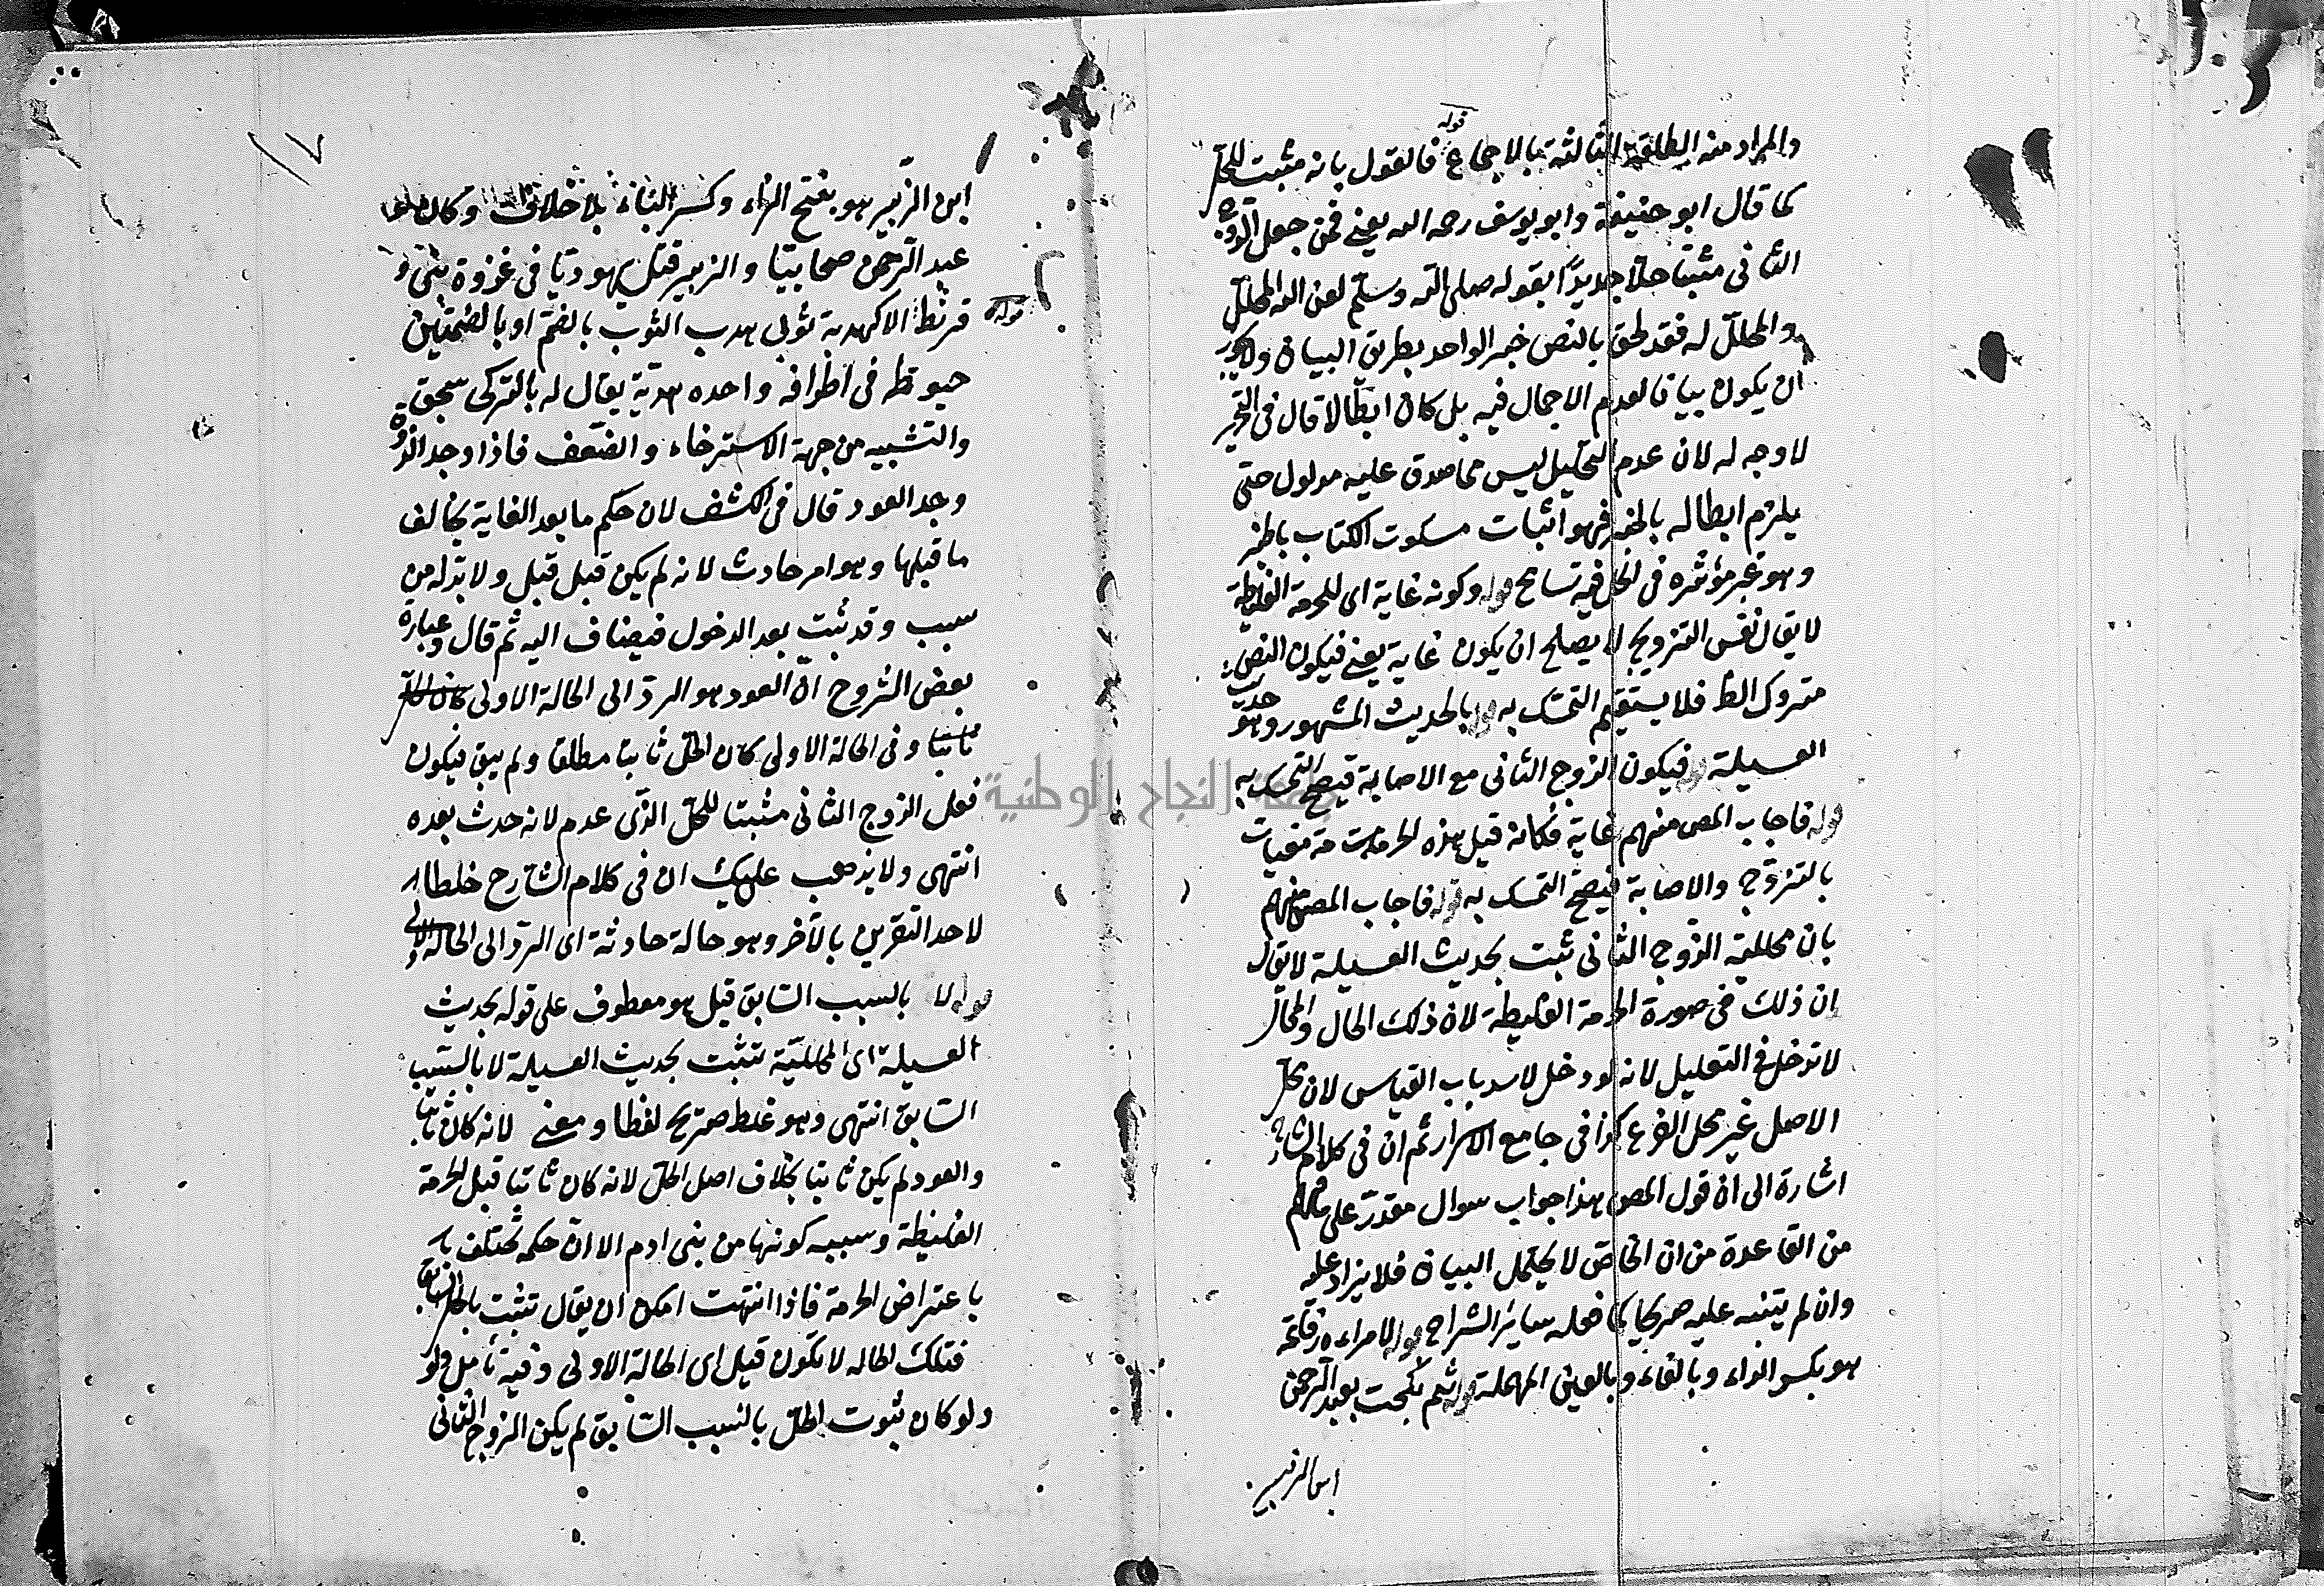 قوله
والمراد منه الطلقة الثالثة بالاجماع فالقول بانه مثبت للحل
كما قال ابو حنيفة وابو يوسف رحمه الله يعني فمن جعل الزوج
الثاني مثبتا حلا جديدا بقوله صلى الله وسلم لعن الله المحلل
والمحلل له فقد لحق بالنص خبر الواحد بطريق البيان ولا يجوز
ان يكون بيانا لعدم الاجمال فيه بل كان ابطالا قال في التحرير
لا وجه له لان عدم التحليل ليس مما صدق عليه مدلول حتى
يلزم ابطاله بالخبر فهو اثبات مسكوت الكتاب بالخبر
وهو غير مؤثره في الحل فيه تسامح قوله وكونه غاية اى للحرمة الغليظة
لا يقال نفس التزويج لا يصلح ان يكون غاية يعني فيكون النص
متروك الظ فلا يستقيم التمسك به قوله بالحديث المشهور وهو حديث
العسيلة قوله فيكون الزوج الثاني مع الاصابة فيصح التمسك به
قوله فاجاب المص منهم غاية فكانه قيل هذه الحرمة مغيات
بالتزوج والاصابة فيصح التمسك به قوله فاجاب المص منهم
بان محللية الزوج الثاني ثبت بحديث العسيلة لا يقال
ان ذلك في صورة الحرمة الغليظة لان ذلك الحال والمحال
لا تدخل في التعليل لانه لو دخل لانسد باب القياس لان محل
الاصل غير محل الفرع كذا في جامع الاسرار ثم ان في كلام الشارح
اشارة الى ان قول المص هذا جواب سوال مقدر على ما فهم
من القاعدة من ان الخاص لا يحتمل البيان فلا يزاد عليه
وان لم يتنبه عليه صريحا كما فعله سائر الشراح قوله لامراءه رفاعة
هو بكسر الراء وبالفاء وبالعين المهملة قوله ثم نكحت بعبد الرحمن
ابن الزبير
١٧
ابن الزبير هو بفتح الزاء وكسر الباء بلا خلاف وكان
عبد الرحمن صحابيا والزبير قتل يهوديا في غزوة بني
قوله
قريظ الا كهدبة ثوبى هدب الثوب بالضم او بالضمتين
خيوطه في اطرافه واحده هدبة يقال له بالتركى سجق
والتشبيه من جهة الاسترخاء والضعف فاذا وجد الذوق
وجد العود قال في الكشف لان حكم ما بعد الغاية يخالف
ما قبلها وهو امر حادث لانه لم يكن قبل قبل ولا بد له من
سبب وقد ثبت بعد الدخول فيضاف اليه ثم قال وعبارة
بعض الشروح ان العود هو الرد الى الحالة الاولى كان الحل
ثابتا وفي الحالة الاولى كان الحل ثابتا مطلقا ولم يبق فيكون
فعل الزوج الثاني مثبتا للحل الذي عدم لانه حدث بعده
انتهى ولا يذهب عليك ان في كلام الشارح خلطا
لاحد التقريرين بالاخر وهو حالة حادثة اى الرد الى الحالة الاولى
قوله لا بالسبب السابق قيل هو معطوف على قوله بحديث
العسيلة اى المحللية تثبت بحديث العسيلة لا بالسبب
السابق انتهى وهو غلط صريح لفظا ومعنى لانه كان ثابتا
والعود لم يكن ثابتا بخلاف اصل الحل لانه كان ثابتا قبل الحرمة
الغليظة وسببه كونها من بنى ادم الا ان حكمه تخلف
باعتراض الحرمة فاذا انتهت امكن ان يقال تثبت بالحل السابق
فتلك الحاله لا تكون قبل اى الحالة الاولى وفيه تأمل ولو
ولو كان ثبوت الحل بالسبب السابق لم يكن الزوج الثاني
جامعة النجاح الوطنية